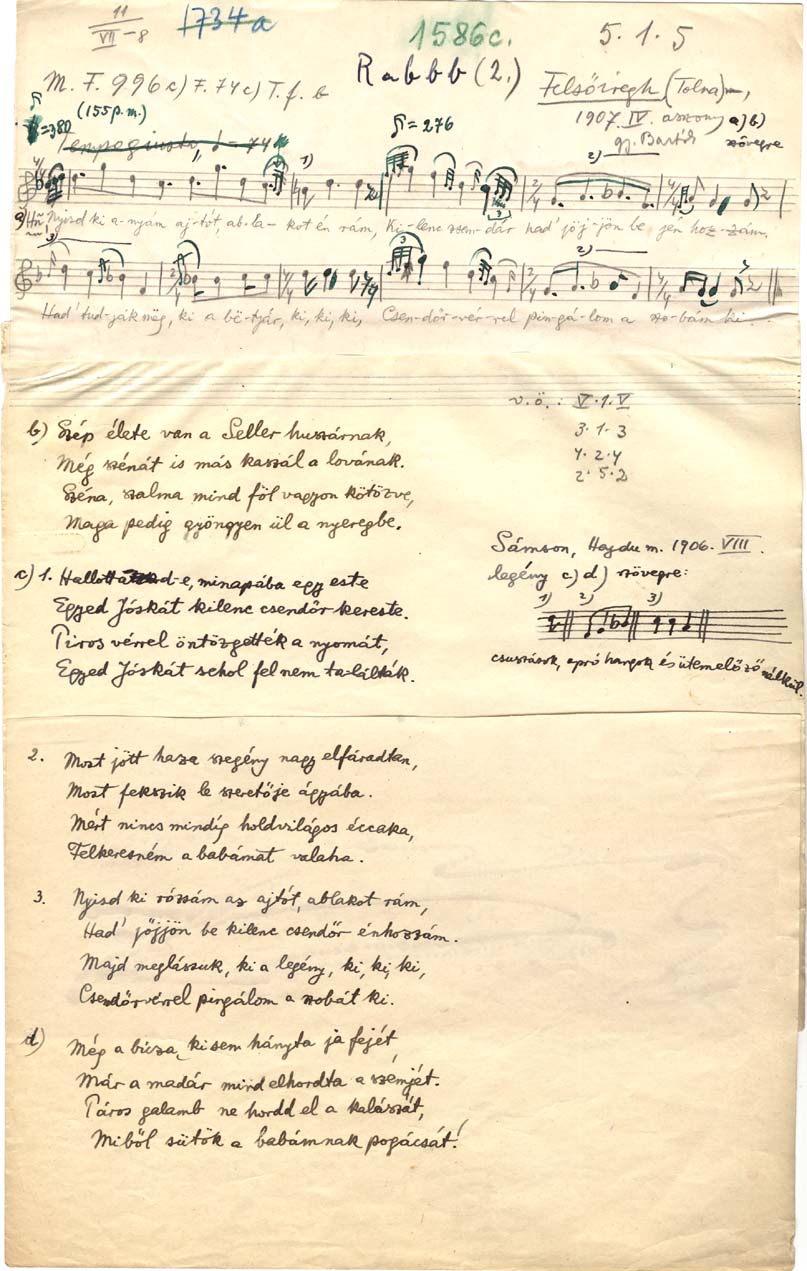 11
VII -8
1734a
1586c.
5.1.5
Rabbb (2.)
M. F. 996 c) F. 74 c) T. f. b
Felsőiregh (Tolna),
(155 p. m.)
1907. IV. asszony a) b)
szövegre
=380
= 276
gy. Bartók
Tempo giusto, = 74
1)
2)
a) Hm̃ Nyisd ki a-nyám aj-tót, ab-la-kot én rám, Ki-lenc zsen-dár had' jöj-jön be jen hoz-zám.
3)
3
2)
Had' tud-ják mëg, ki a bë-tyár, ki, ki, ki, Csen-dőr-vér-rel pin-gá-lom a szo-bám ki.
v. ö.: V.1.V
3.1.3
4.2.4
2.5.2
b) Szép élete van a Seller huszárnak,
Még szénát is más kaszál a lovának.
Széna, szalma mind föl vagyon kötözve,
Maga pedig gyöngyen ül a nyeregbe.
Sámson, Hajdu m. 1906. VIII.
legény c) d) szövegre:
1) 2) 3)
csuszások, apró hangok és ütemelőző nélkül.
c) 1. Hallottad-e, minapába egy este
Egyed Jóskát kilenc csendőr kereste.
Piros vérrel öntözgették a nyomát,
Egyed Jóskát sehol fel nem ta-lálták.
2. Most jött haza szegény nagy elfáradtan,
Most fekszik le szeretője ágyába.
Mért nincs mindíg holdvilágos éccaka,
Felkeresném a babámat valaha.
3. Nyisd ki rózsám az ajtót, ablakot rám,
Had' jöjjön be kilenc csendőr énhozzám.
Majd meglássuk, ki a legény, ki, ki, ki,
Csendőrvérrel pingálom a szobát ki.
d) Még a búza ki sem hányta ja fejét,
Már a madár mind elhordta a szëmjét.
Páros galamb ne hordd el a kalászát,
Miből sütök a babámnak pogácsát!